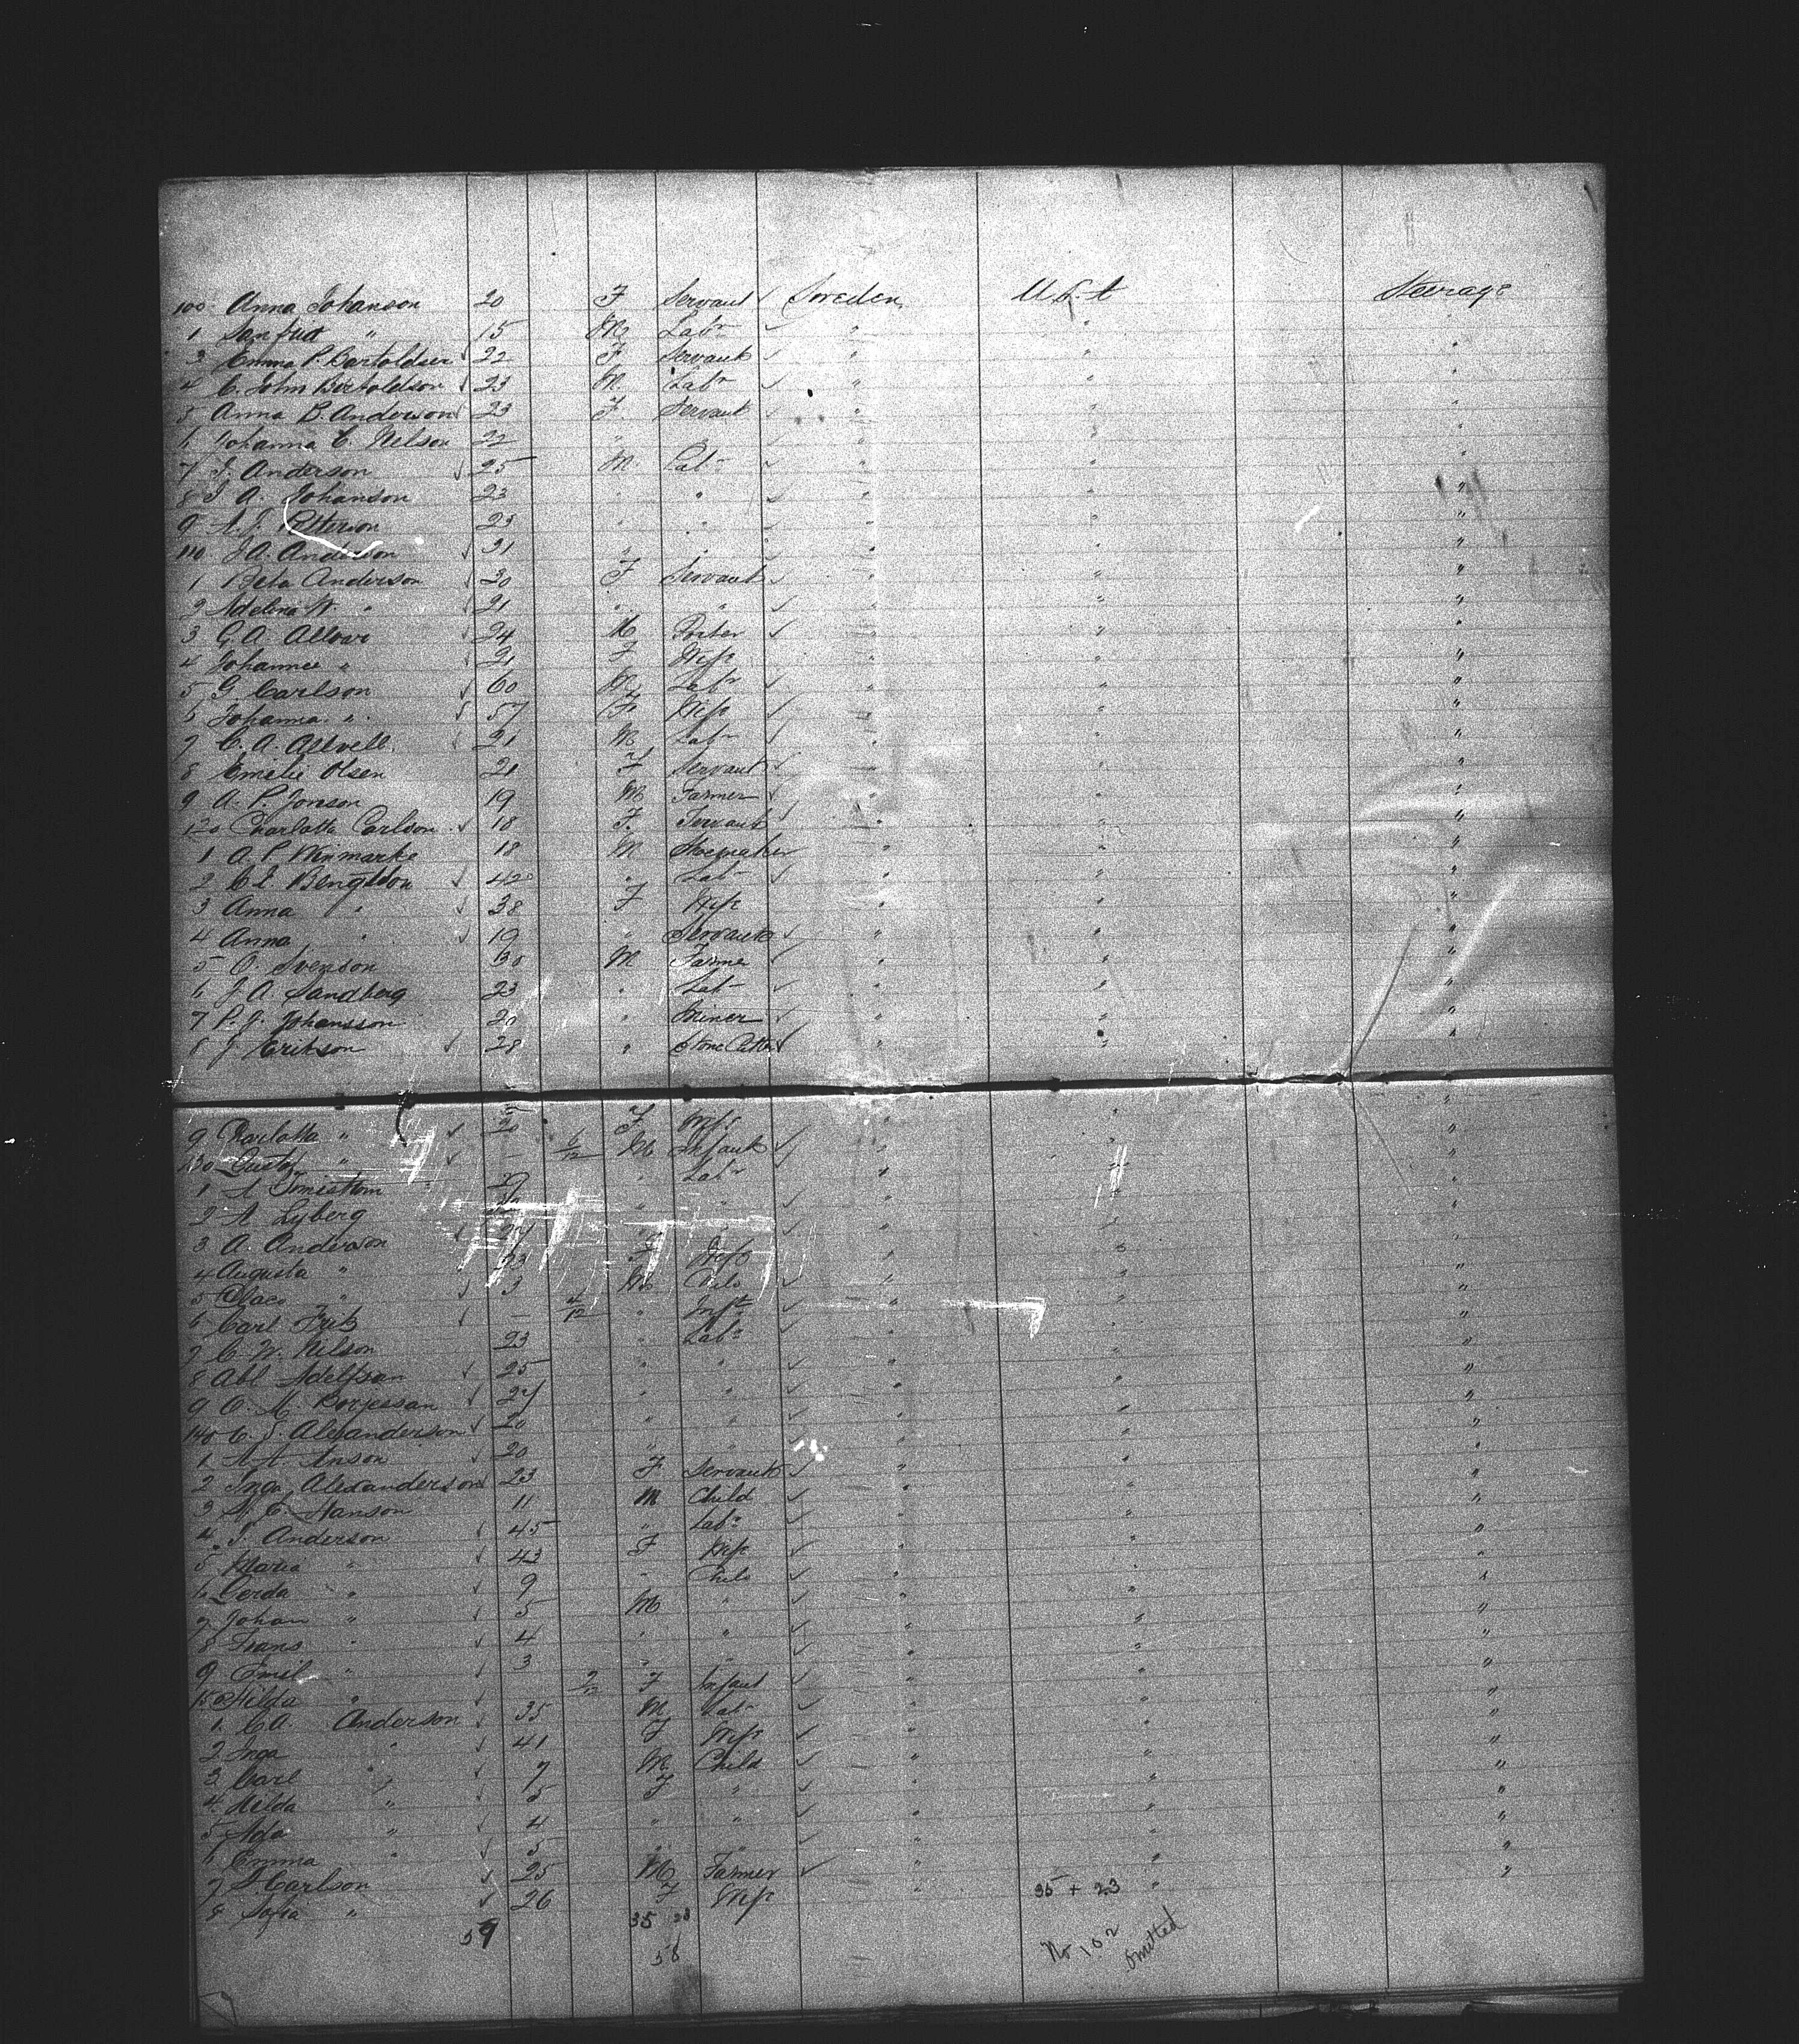 100 Anna Johanson 20 F Servant Sweden U.S.A Steerage
1 " 15 M Labr " " "
3 Emma P. Bartoldsen 22 F Servant " " "
4 C. John Bertoldson 23 M Labr " " "
5 Anna B. Anderson 23 F Servant " " "
6 Johanna C. Nelson 22 " " " " "
7 J. Anderson 25 M Labr " " "
8 J. A. Johanson 23 " " " " "
9 A. J. Petterson 23 " " " " "
110 J. A. Anderson 21 " " " " "
1 Beta Anderson 30 F Servant " " "
2 Adelina W. " 21 " " " " "
3 G. A. 24 M Porter " " "
4 " 21 F Wife " " "
5 G. Carlson 60 M Labr " " "
6 Johanna " 57 F Wife " " "
7 C. A. 21 M Labr " " "
8 Emelie Olsen 21 F Servant " " "
9 A. P. Jonson 19 M Farmer " " "
120 Charlotta Carlson 18 F. Servant " " "
1 A. P. Winmarke 18 M Shoemaker " " "
2 Bengtson 42 " Labr " " "
3 Anna " 38 F Wife " " "
4 Anna " 19 " Servant " " "
5 O. Svenson 30 M Farmer " " "
6 J. A. Sandberg 23 " Labr " " "
7 P. J. Johansson 20 " Miner " " "
8 J. Erikson 28 " Stone Cutter " " "
9 Charlotta " F Wife " " "
130 Gustaf " — 6/12 M Infant " " "
1 A " Labr " " "
2 A. Lyberg " " " " "
3 A. Anderson " " " "
4 Augusta " 23 F Wife " " "
5 " 3 M Child " " "
6 Carl Fritz — 4/12 " Inft " " "
7 C. W. Nelson 23 " Labr " " "
8 Abl Adelfson 25 " " " " "
9 O. M. Borjessan 27 " " " " "
140 C. J. Alexanderson 20 " " " " "
1 A. A. Anson 20 " " " " "
2 Inga Alexanderson 23 F Servant " " "
3 Hanson 11 M Child " " "
4 J. Anderson 45 " Labr " " "
5 Maria " 43 F Wife " " "
6 Gerda " 9 " Child " " "
7 Johan " 5 M " " " "
8 Frans " 4 " " " " "
9 Emil " 3 " " " " "
150 Hilda " F Infant " " "
1 C. A. Anderson 35 M Labr " " "
2 Inga " 41 F Wife " " "
3 Carl " 7 M Child " " "
4 Hilda " 5 F " " " "
5 Ada " 4 " " " " "
6 Emma " 5 " " " " "
7 Carlson 25 M Farmer " " "
8 Sofia " 26 F Wife " " "
35 + 23
59 35 23
58
No 102 omitted